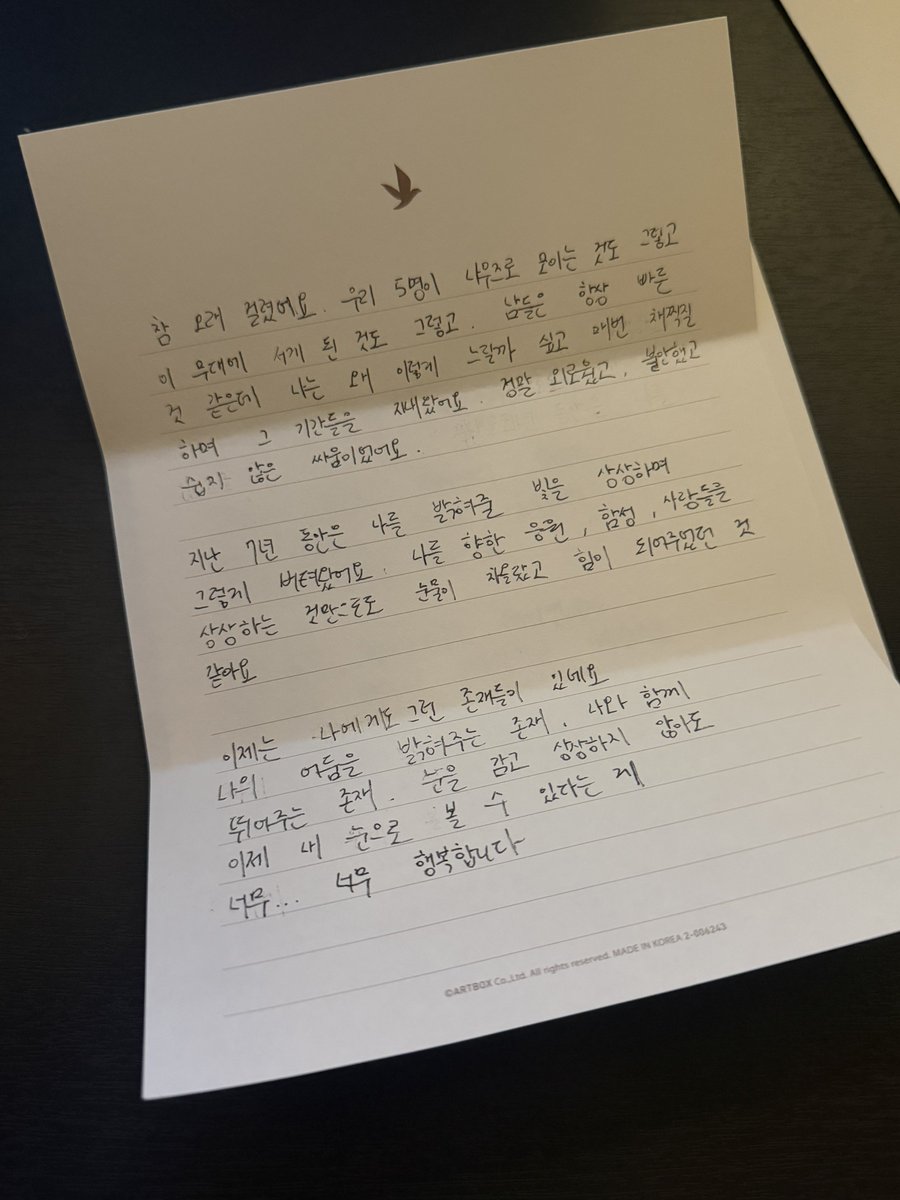 참 오래 걸렸어요. 우리 5명이 나우즈로 모이는 것도 그렇고
이 무대에 서게 된 것도 그렇고. 남들은 항상 빠른
것 같은데 나는 왜 이렇게 느릴까 싶고 매번 채찍질
하며 그 기간들을 지내왔어요. 정말 외로웠고, 불안했고
쉽지 않은 싸움이었어요.
지난 7년 동안은 나를 밝혀줄 빛을 상상하며
그렇게 버텨왔어요. 나를 향한 응원, 함성, 사랑들을
상상하는 것만으로도 눈물이 차올랐고 힘이 되어주었던 것
같아요
이제는 나에게도 그런 존재들이 있네요
나의 어둠을 밝혀주는 존재. 나와 함께
뛰어주는 존재. 눈을 감고 상상하지 않아도
이제 내 눈으로 볼 수 있다는 게
너무... 너무 행복합니다
©ARTBOX Co.,Ltd. All rights reserved. MADE IN KOREA 2-006243